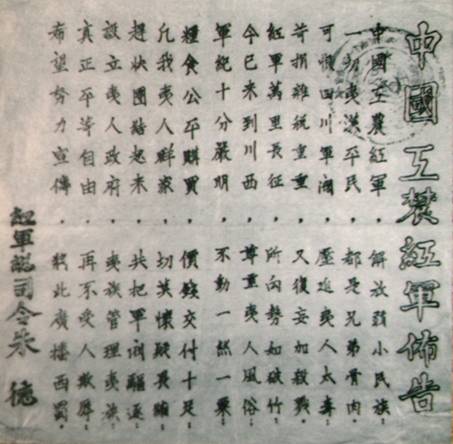 中國工農紅軍佈告
中國工農紅軍，解放弱小民族；
一切夷漢平民，都是兄弟骨肉。
可恨四川軍閥，壓迫夷人太毒，
苛捐雜稅重重，又復妄加殺戮。
紅軍萬里長征，所向勢如破竹，
今已來到川西，尊重夷人風俗。
軍紀十分嚴明，不動一絲一粟，
糧食公平購買，價錢交付十足。
凡我夷人群眾，切莫懷疑畏縮，
趕快團結起來，共把軍閥驅逐。
設立夷人政府，夷族管理夷族；
真正平等自由，再不受人欺辱。
希望努力宣傳，將此廣播西蜀。
紅軍總司令朱德